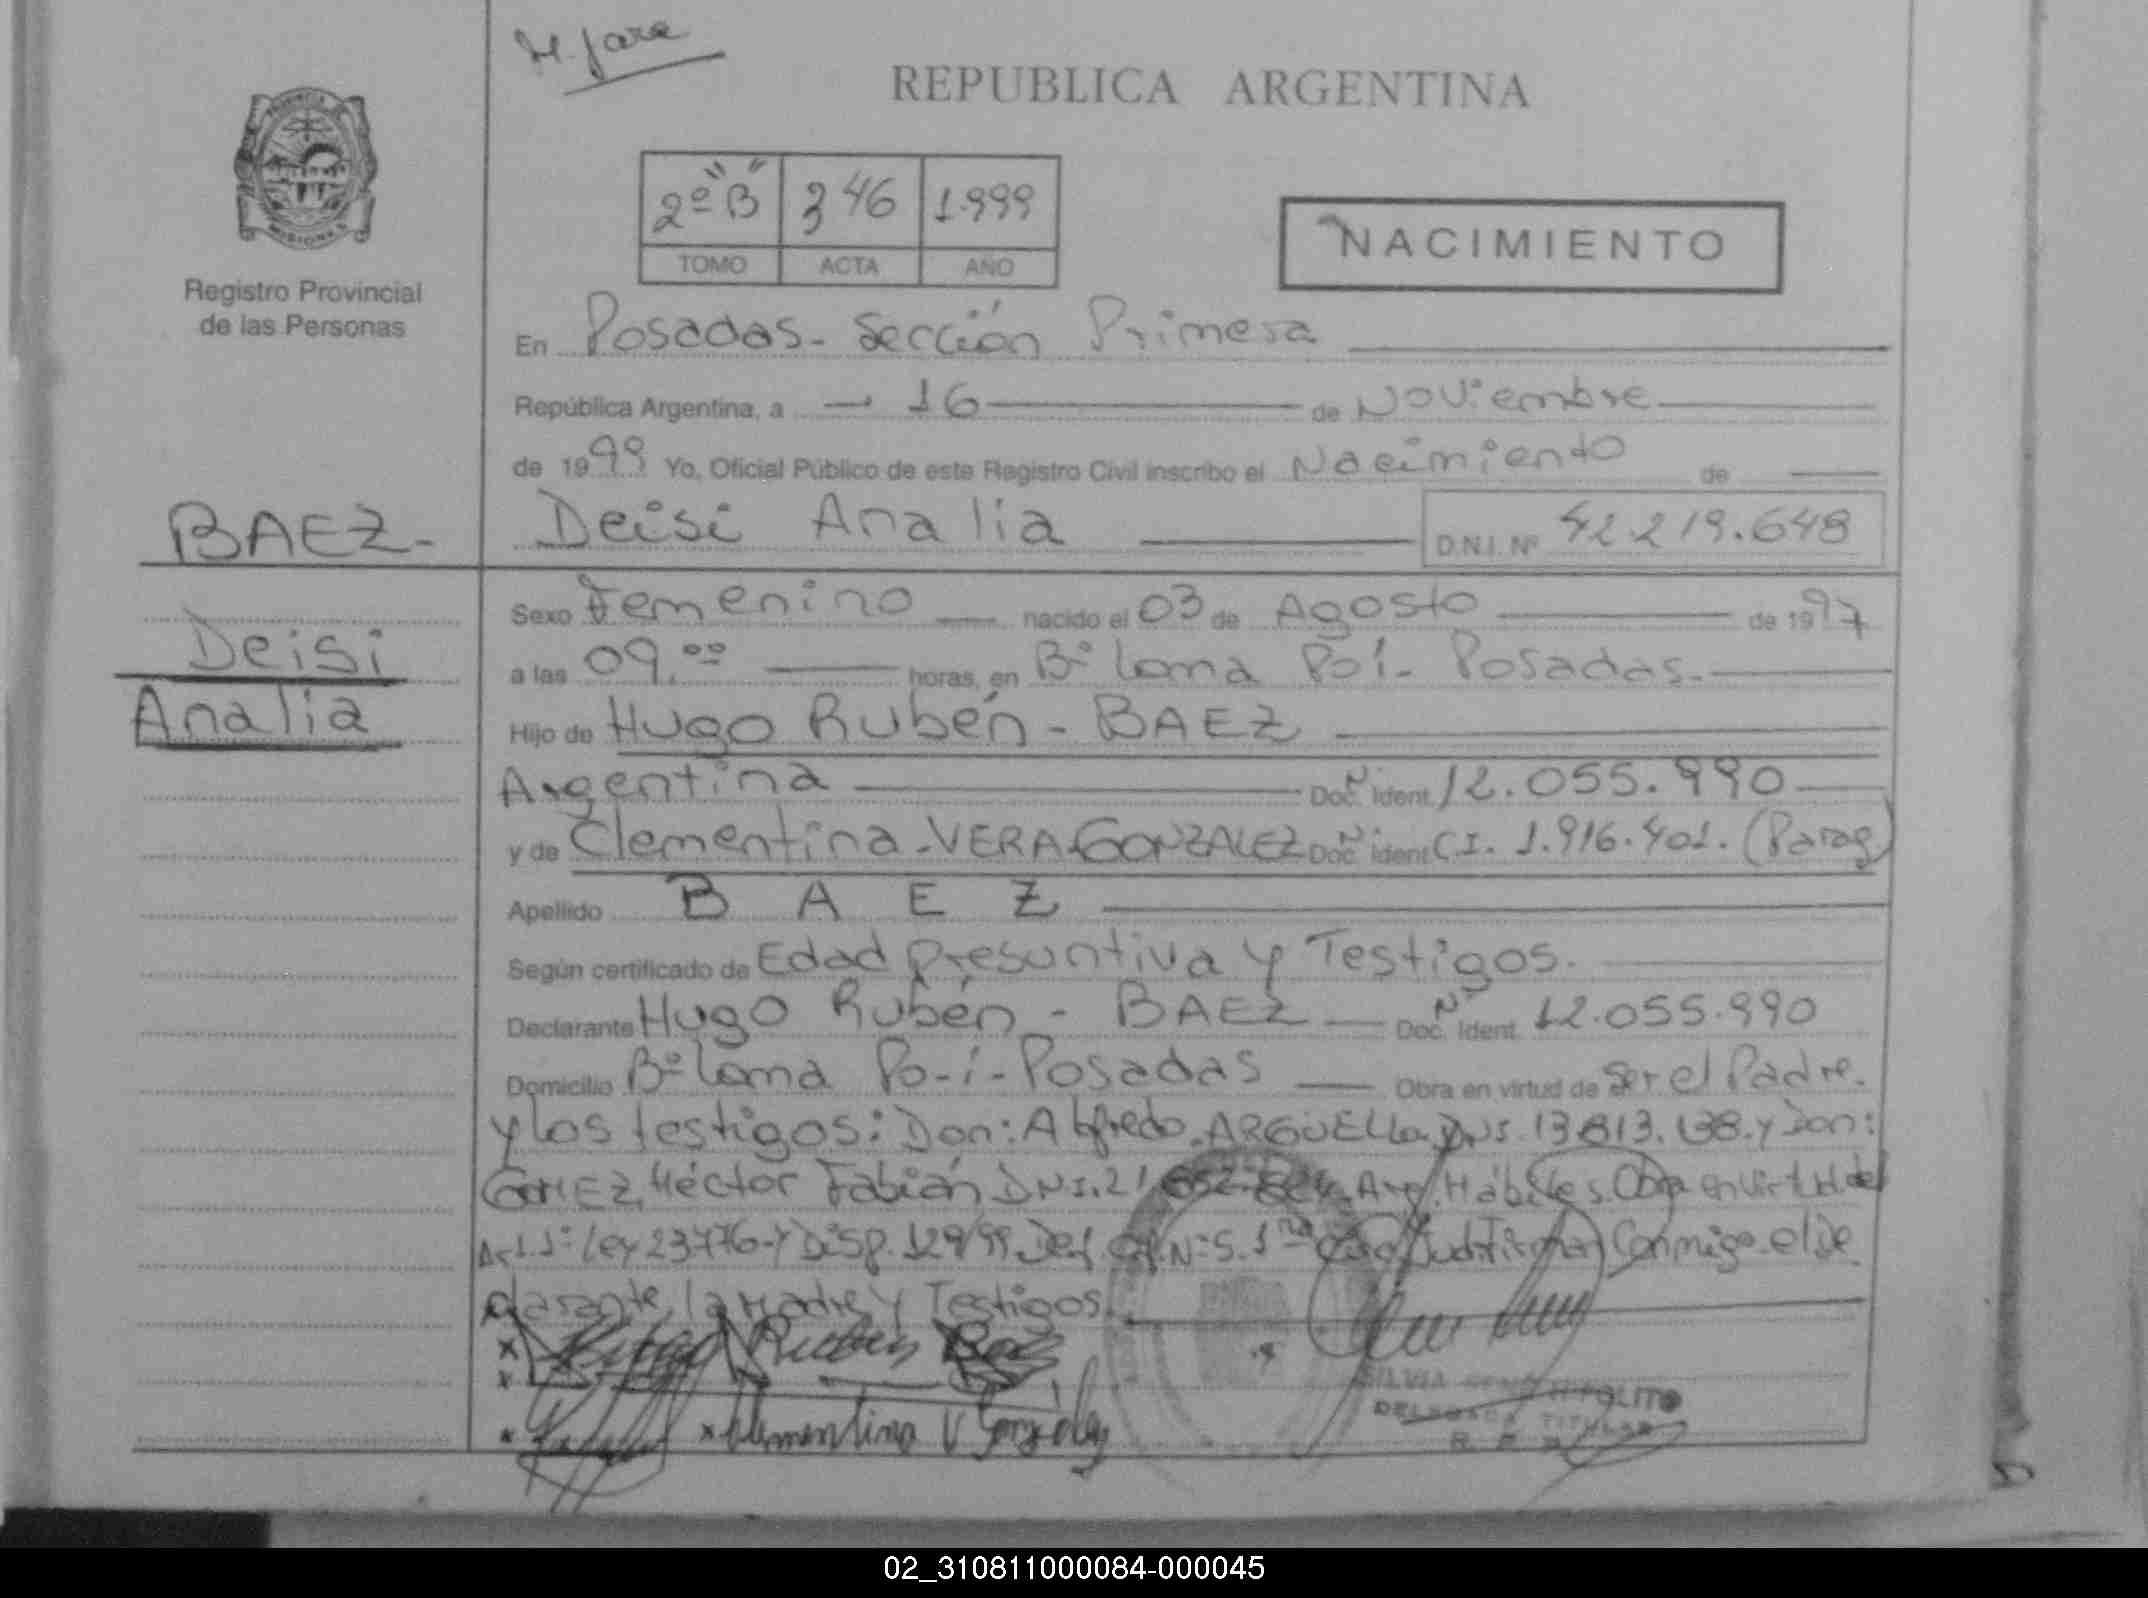 H. Jara
REPUBLICA ARGENTINA
2º "B" 346 1.999
TOMO ACTA AÑO
NACIMIENTO
PROVINCIA DE
MISIONES
Registro Provincial
de las Personas
En Posadas - Sección Primera
República Argentina, a 16 de Noviembre
de 1999 Yo, Oficial Público de este Registro Civil inscribo el Nacimiento de
BAEZ - Deisi Analia D.N.I. Nº 42.219.648
Sexo Femenino nacido el 03 de Agosto de 1997
Deisi
a las 09.00 horas, en Bº Loma Poí - Posadas.-
Analia
Hijo de Hugo Rubén - BAEZ
Argentina Nº Doc. Ident. 12.055.990
y de Clementina - VERA GONZALEZ Nº Doc. Ident. C.I. 1.916.401. (Parag)
Apellido B A E Z
Según certificado de Edad Presuntiva y Testigos.
Declarante Hugo Rubén - BAEZ Nº Doc. Ident. 12.055.990
Domicilio Bº Loma Po-í - Posadas Obra en virtud de Ser el Padre.
y los testigos: Don: Alfredo. ARGÜELLO. DNI. 13.813.138. y Don:
GOMEZ, Héctor Fabián DNI. 21 Arg. Hábiles. Obra en virtud del
Art. 1º Ley 23776 y Disp. 129/99 Def. Of. Nº 5. 1ra Conmigo el De
clarante, la Madre y Testigos
x Hugo Ruben Baez
x
x x Clementina V Gonzalez
SILVIA HIPOLITO
DELEGADA TITULAR
R. P. P.
02_310811000084-000045